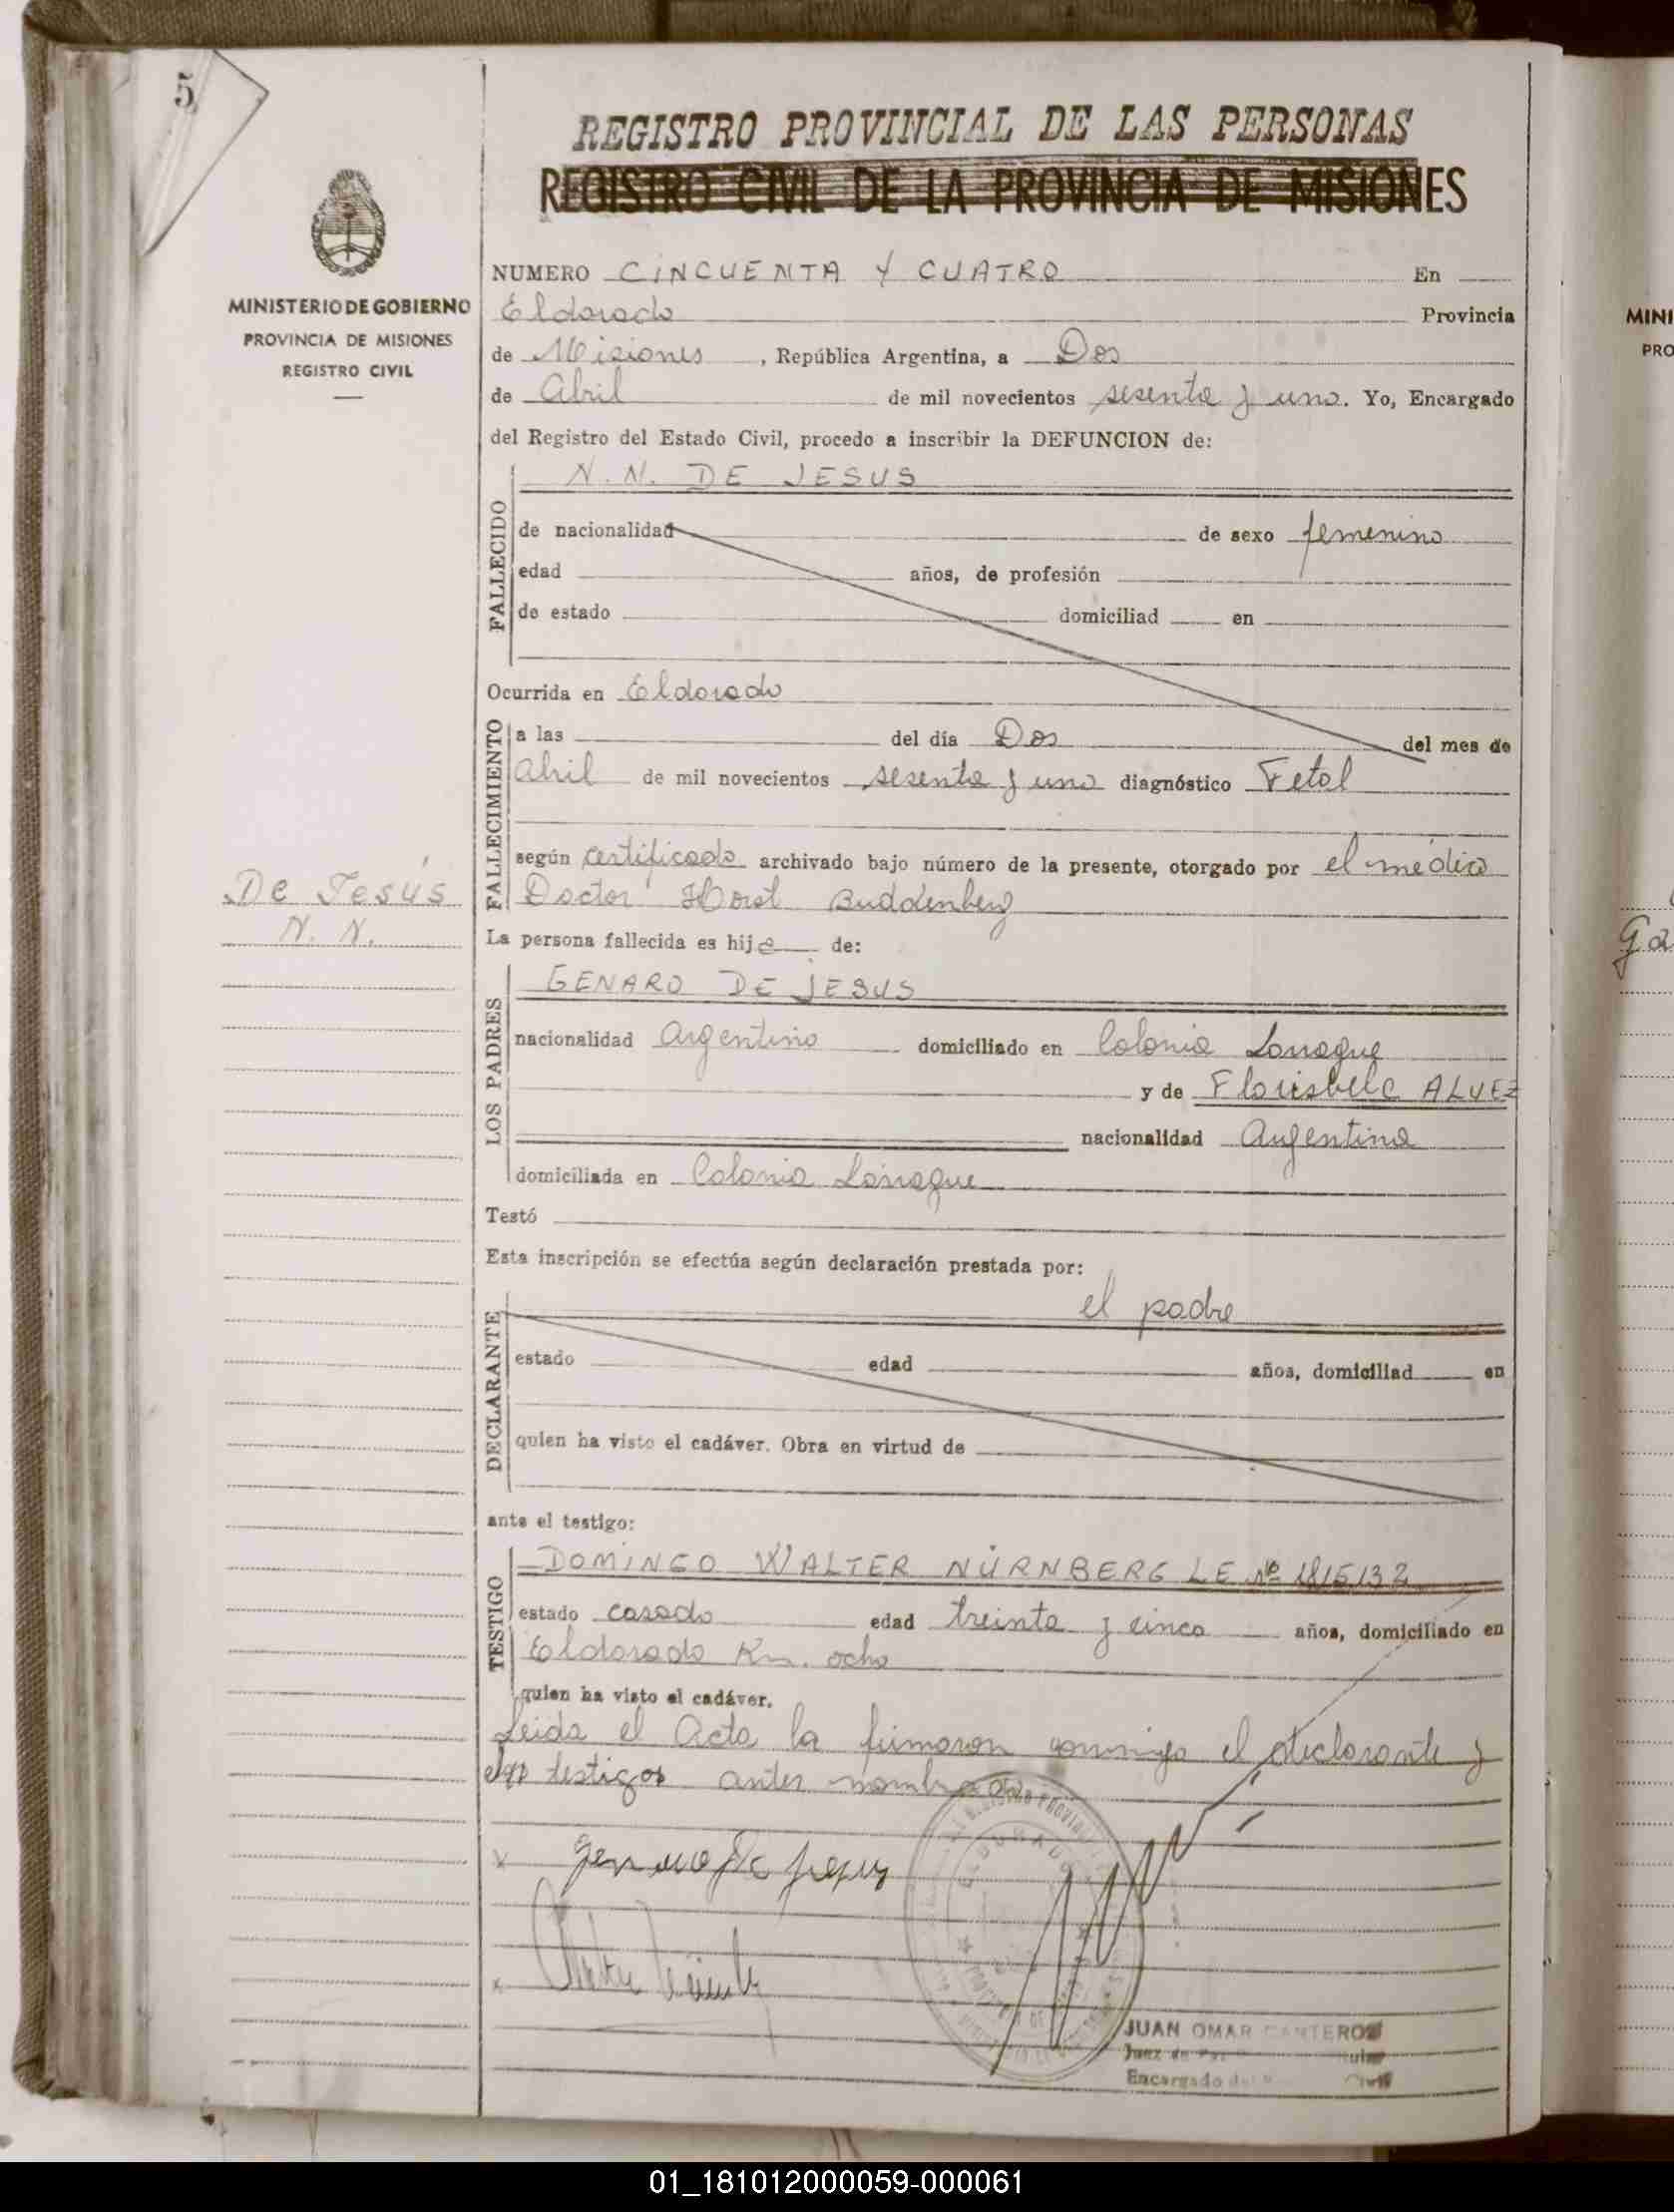 5
MINISTERIO DE GOBIERNO
PROVINCIA DE MISIONES
REGISTRO CIVIL
REGISTRO PROVINCIAL DE LAS PERSONAS
REGISTRO CIVIL DE LA PROVINCIA DE MISIONES
NUMERO CINCUENTA Y CUATRO En
Eldorado Provincia
de Misiones, República Argentina, a Dos
de Abril de mil novecientos sesenta y uno. Yo, Encargado
del Registro del Estado Civil, procedo a inscribir la DEFUNCION de:
FALLECIDO
N. N. DE JESUS
de nacionalidad de sexo femenino
edad años, de profesión
de estado domiciliad en
Ocurrida en Eldorado
FALLECIMIENTO
a las del día Dos del mes de
Abril de mil novecientos sesenta y uno diagnóstico Fetal
según certificado archivado bajo número de la presente, otorgado por el médico
Doctor Horst Buddenberg
De Jesús
N. N.
La persona fallecida es hija de:
LOS PADRES
GENARO DE JESUS
nacionalidad Argentino domiciliado en Colonia
y de ALVEZ
nacionalidad Argentina
domiciliada en Colonia
Testó
Esta inscripción se efectúa según declaración prestada por:
DECLARANTE
el padre
estado edad años, domiciliad en
quien ha visto el cadáver. Obra en virtud de
ante el testigo:
TESTIGO
DOMINGO WALTER NÜRNBERG LE Nº 1815132
estado casado edad treinta y cinco años, domiciliado en
Eldorado Km. ocho
quien ha visto el cadáver.
Leida el Acta la firmaron conmigo el declarante y
testigos antes nombrados
Genaro De Jesus
JUAN OMAR CANTEROS
Juez de Paz
Encargado del Civil
MINI
PRO
Ga
01_181012000059-000061